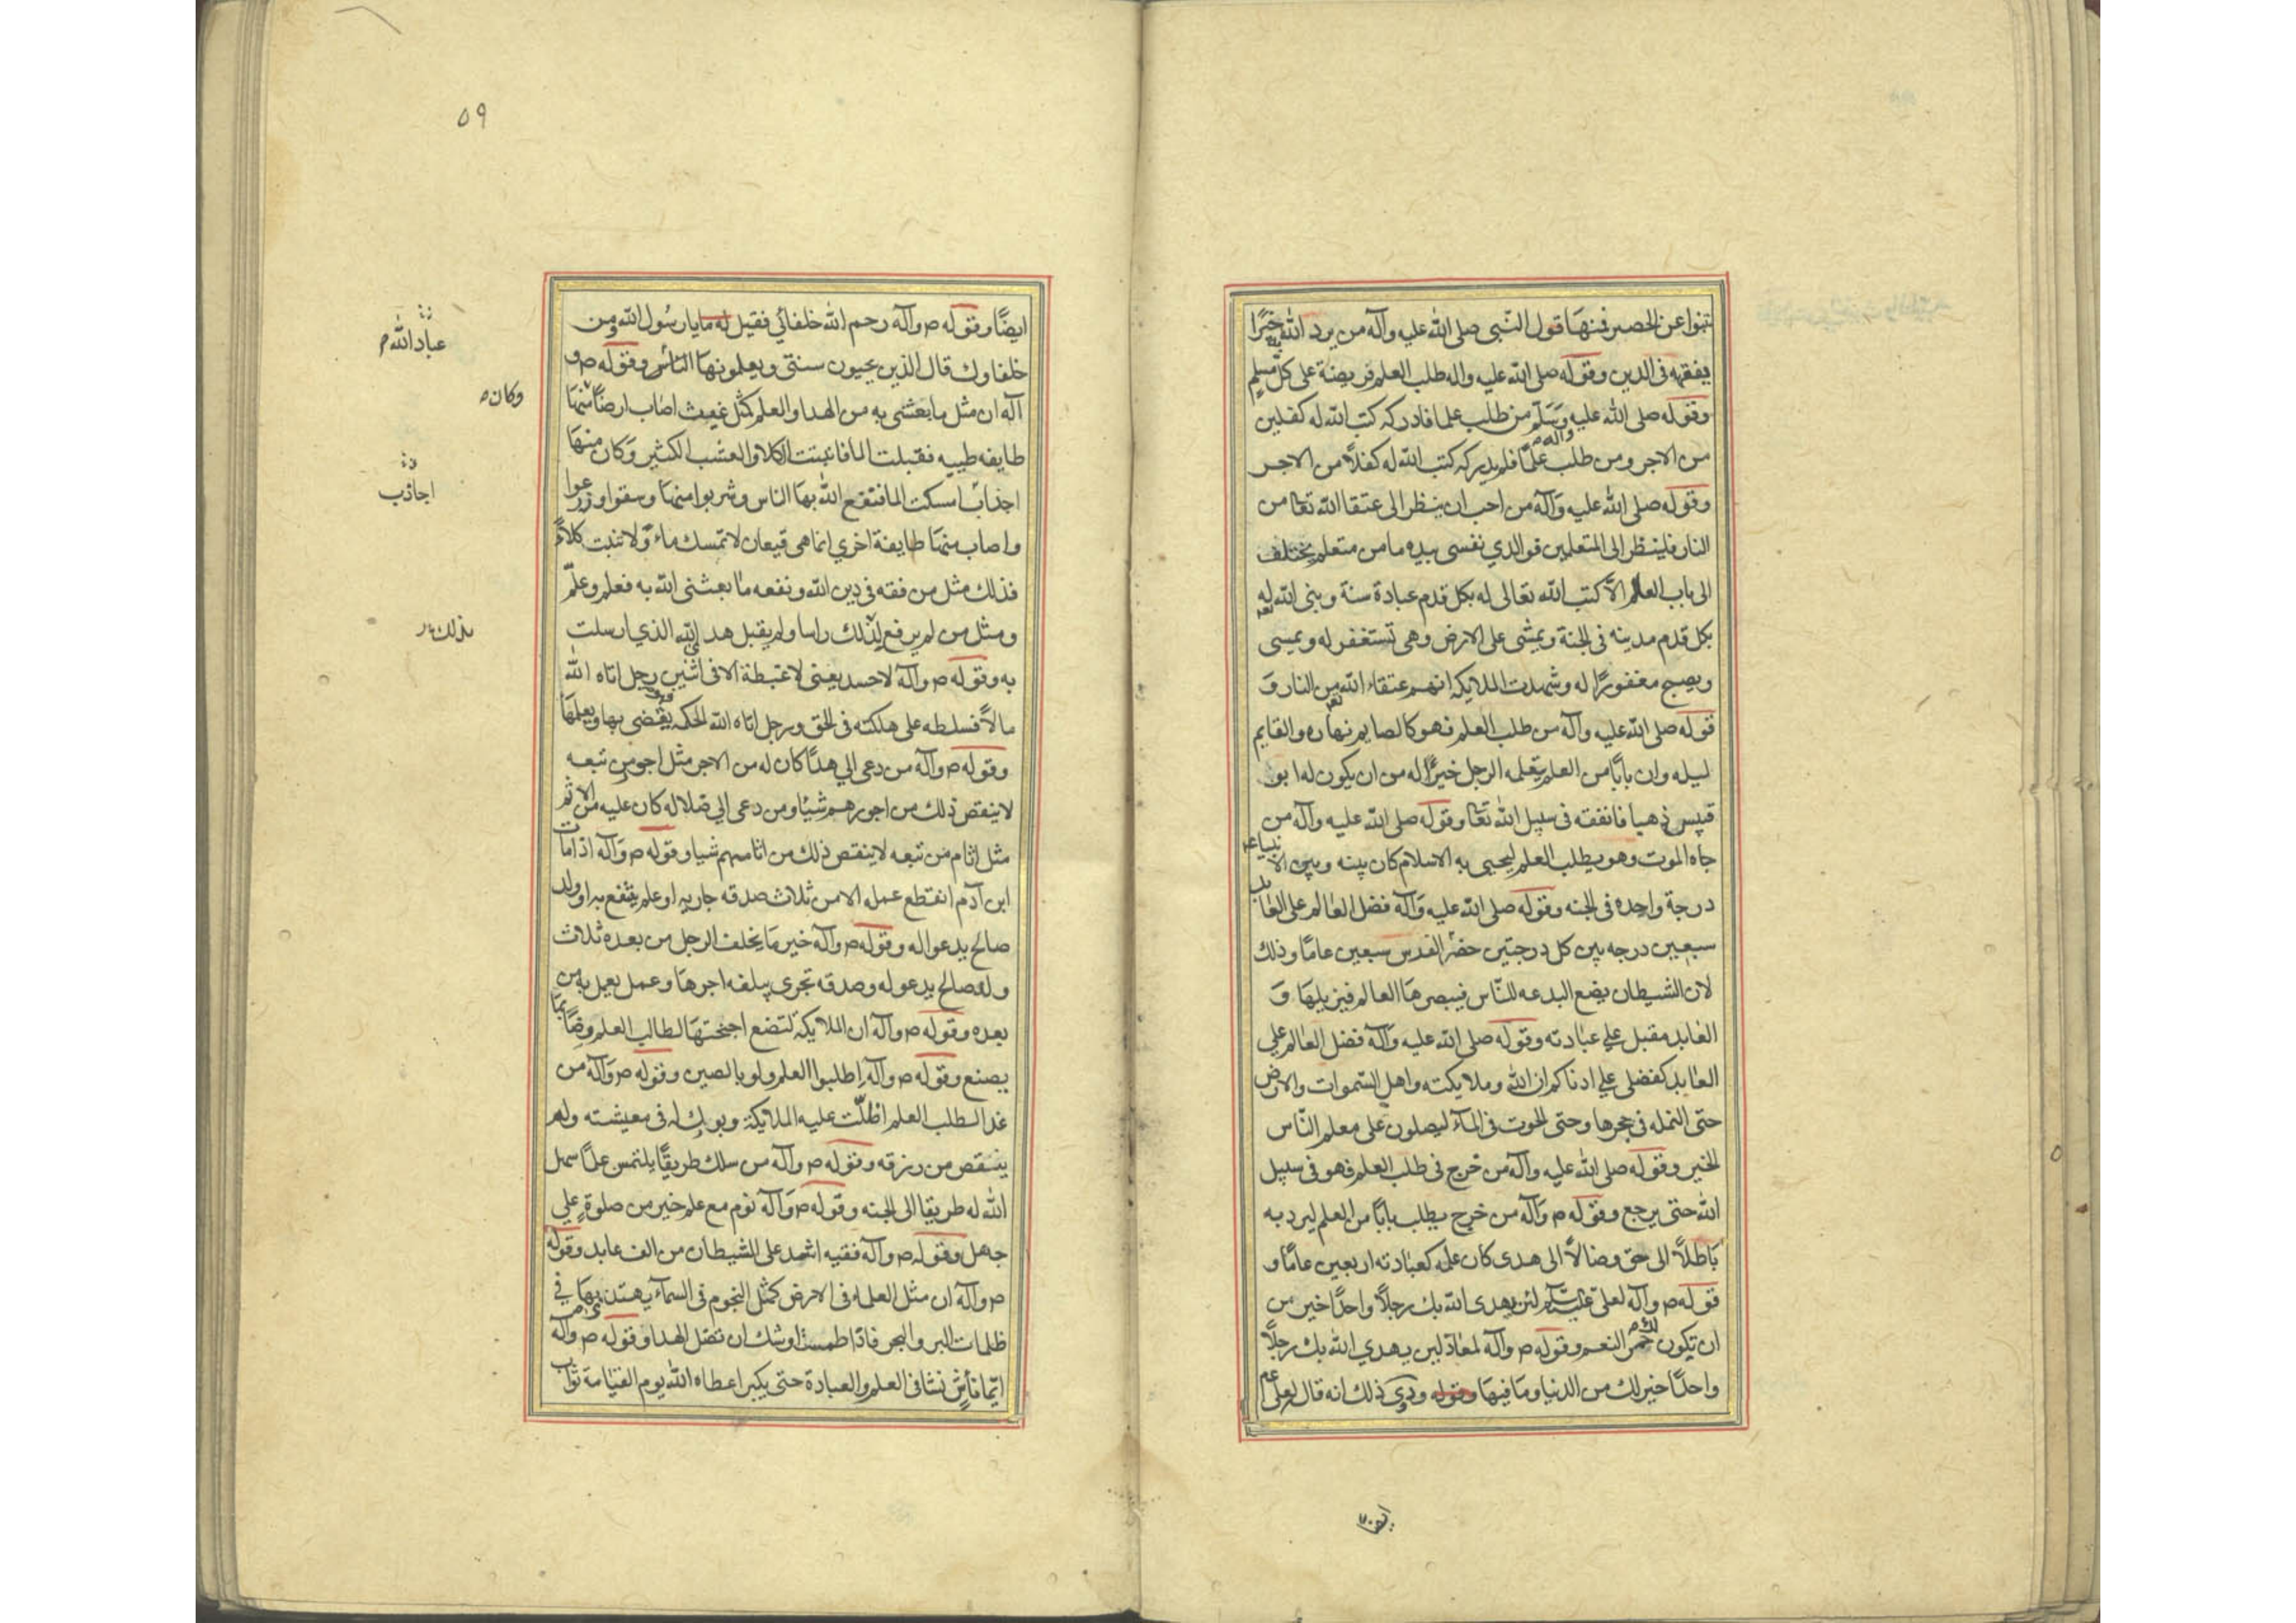 تنبوا عن الحصر فمنها قول النبي صلى الله عليه وآله من يرد الله به خيرًا
يفقهه فى الدين وقوله صلى الله عليه واله طلب العلم فريضة على كل مسلم
وقوله صلى الله عليه وآله وسلم من طلب علما فادركه كتب الله له كفلين
من الاجر ومن طلب علمًا فلم يدركه كتب الله له كفلًا من الاجر
وقوله صلى الله عليه وآله من احب ان ينظر الى عتقا الله تعا من
النار فلينظر الى المتعلمين فوالذي نفسى بيده ما من متعلم يختلف
الى باب العالم الّا كتب الله تعالى له بكل قدم عبادة سنة وبنى الله له
بكل قدم مدينه فى الجنة ويمشى على الارض وهى تستغفر له ويمسى
ويصبح مغفورًا له وشهدت الملايكه انهم عتقاء الله من النار و
قوله صلى الله عليه وآله من طلب العلم فهو كالصايم نهاره والقايم
ليله وان بابًا من العلم يتعلمه الرجل خيرًا له من ان يكون له ابو
قبيس ذهبا فانفقه فى سبيل الله تعا وقوله صلى الله عليه وآله من
جاه الموت وهو يطلب العلم ليحيى به الاسلام كان بينه وبين الانبياء
درجة واحده فى الجنه وقوله صلى الله عليه وآله فضل العالم على العابد
سبعين درجه بين كل درجتين حضر الفرس سبعين عامًا وذلك
لان الشيطان يضع البدعه للنّاس فيبصرها العالم فيزيلها و
العابد مقبل علي عبادته وقوله صلى الله عليه وآله فضل العالم علي
العابد كفضلى علي ادناكم ان الله وملايكته واهل السموات والارض
حتى النمله فى حجرها وحتى الحوت فى المآء ليصلون على معلم النّاس
الخير وقوله صلى الله عليه وآله من خرج فى طلب العلم فهو فى سبيل
الله حتى يرجع وقوله ص وآله من خرج يطلب بابًا من العلم ليرد به
باطلًا الى حق وضالًا الى هدى كان عمله كعبادته اربعين عامًا و
قوله ص وآله لعلى عليه السلام لئن يهدى الله بك رجلًا واحدًا خير من
ان تكون لك حمر النعم وقوله ص وآله لمعاذ لين يهدي الله بك رجلًا
واحدًا خير لك من الدنيا وما فيها وقوله وروى ذلك انه قال لعلى عم
ايضا
٥٩
ايضًا وقوله ص وآله رحم الله خلفائي فقيل له ما يا رسول الله ومن
خلفاوك قال الذين يحيون سنتى ويعلمونها الناس وقوله ص و
آله ان مثل ما بعثنى به من الهدا والعلم كمثل غيث اصاب ارضًا منها
طايفه طيبه فقبلت الما فانبتت الكلا والعشب الكثير وكان منها
اجذاب امسكت الما فنفع الله بها الناس وشربوا منها وسقوا وزرعوا
واصاب منها طايفة اخري انما هى قيعان لا تمسك ماء ولا تنبت كلاءً
فذلك مثل من فقه فى دين الله ونفعه ما بعثنى الله به فعلم وعلّم
ومثل من لم يرفع لذلك راسا ولم يقبل هدى الله الذي ارسلت
به وقوله ص وآله لا حسد يعنى لا غبطة الا فى اثنين رجل اتاه الله
مالًا فسلطه على هلكته فى الحق ورجل اتاه الله الحكمه فهو يقضى بها ويعلمها
وقوله ص وآله من دعى الي هدًا كان له من الاجر مثل اجور من تبعه
لا ينقص ذلك من اجورهم شيًا ومن دعى الي ضلاله كان عليه من الاثم
مثل اثام من تبعه لا ينقص ذلك من اثامهم شيا وقوله ص وآله اذا مات
ابن آدم انقطع عمله الا من ثلاث صدقه جاريه او علم ينتفع به او ولد
صالح يدعوا له وقوله ص وآله خير ما يخلف الرجل من بعده ثلاث
ولد صالح يدعو له وصدقه تجرى يبلغه اجرها وعمل يعمل به من
بعده وقوله ص وآله ان الملايكة لتضع اجنحتها لطالب العلم رضًا بما
يصنع وقوله ص وآله اطلبوا العلم ولو بالصين وقوله ص وآله من
غدا لطلب العلم اظلّت عليه الملايكة وبورك له فى معيشته ولم
ينتقص من رزقه وقوله ص وآله من سلك طريقًا يلتمس علمًا سهل
الله له طريقا الى الجنه وقوله ص وآله نوم مع علم خير من صلوة علي
جهل وقوله ص وآله فقيه اشد على الشيطان من الف عابد وقوله
ص وآله ان مثل العلماء فى الارض كمثل النجوم فى السمآء يهتدى بها في
ظلمات البر والبحر فاذا طمست اوشك ان تضل الهدا وقوله ص وآله
ايما ناش نشا فى العلم والعبادة حتى يكبر اعطاه الله يوم القيامة ثواب
عباد الله م
وكان ص
اجاذب
بذلك